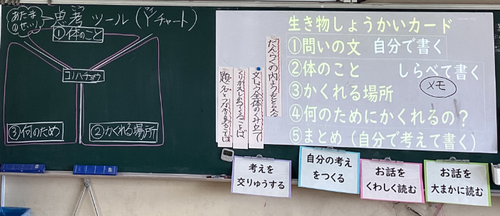 あたまの中せいり
思考ツール（Yチャート）
①体のこと
コノハチョウ
③何のため
②かくれる場所
だんらくの内ようをとらえる
文しょう全体のくみ立て
生き物しょうかいカード
①問いの文 自分で書く
②体のこと しらべて書く
メモ
③かくれる場所
④何のためにかくれるの？
⑤まとめ（自分で考えて書く）
考えを
交りゅうする
自分の考え
をつくる
お話を
くわしく読む
お話を
大まかに読む